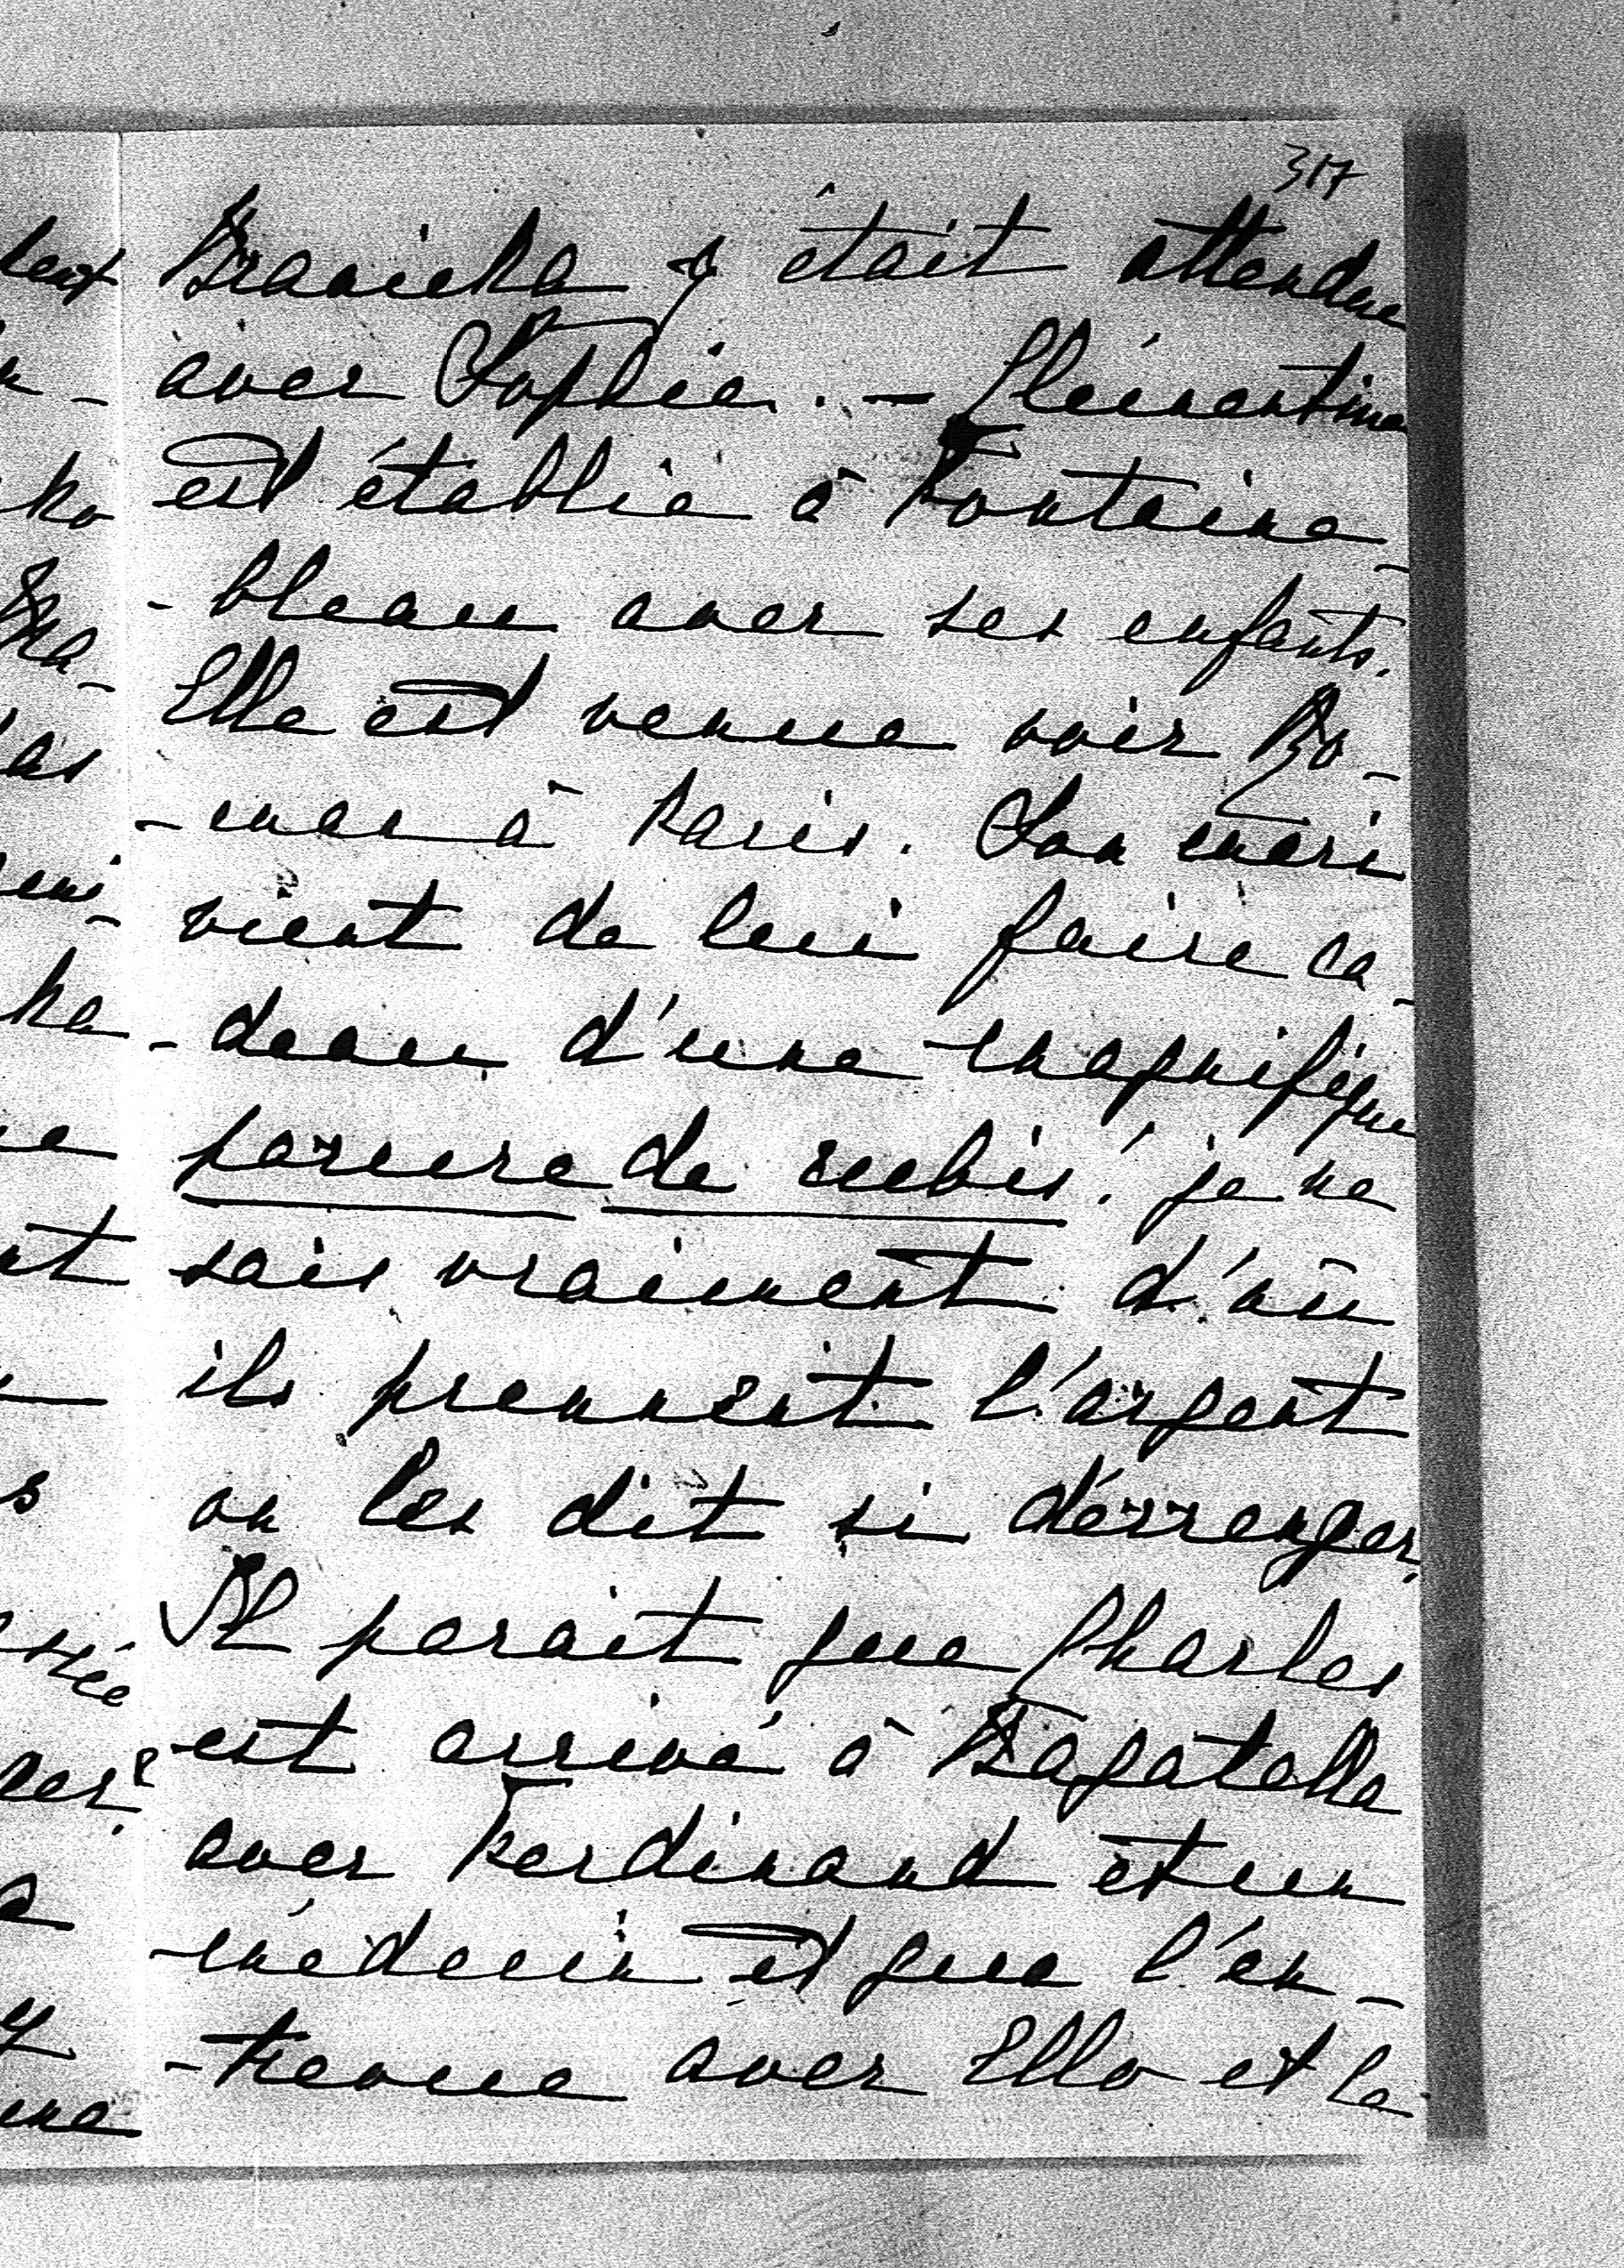 317
Branicka y était attendue
avec Sophie. – Clémentine
est établie à Fontaine-
-bleau avec ses enfants.
Elle est venue voir Ro-
-man à Paris. Son mari
vient de lui faire ca-
-deau d'une magnifique
parure de rubis! je ne
sais vraiment d'où
ils prennent l'argent
on les dit si dérranger.
Il parait que Charles
est arrivé à Bagatelle
avec Ferdinand et un
médecin et que l'en-
-trevue avec Ella et la